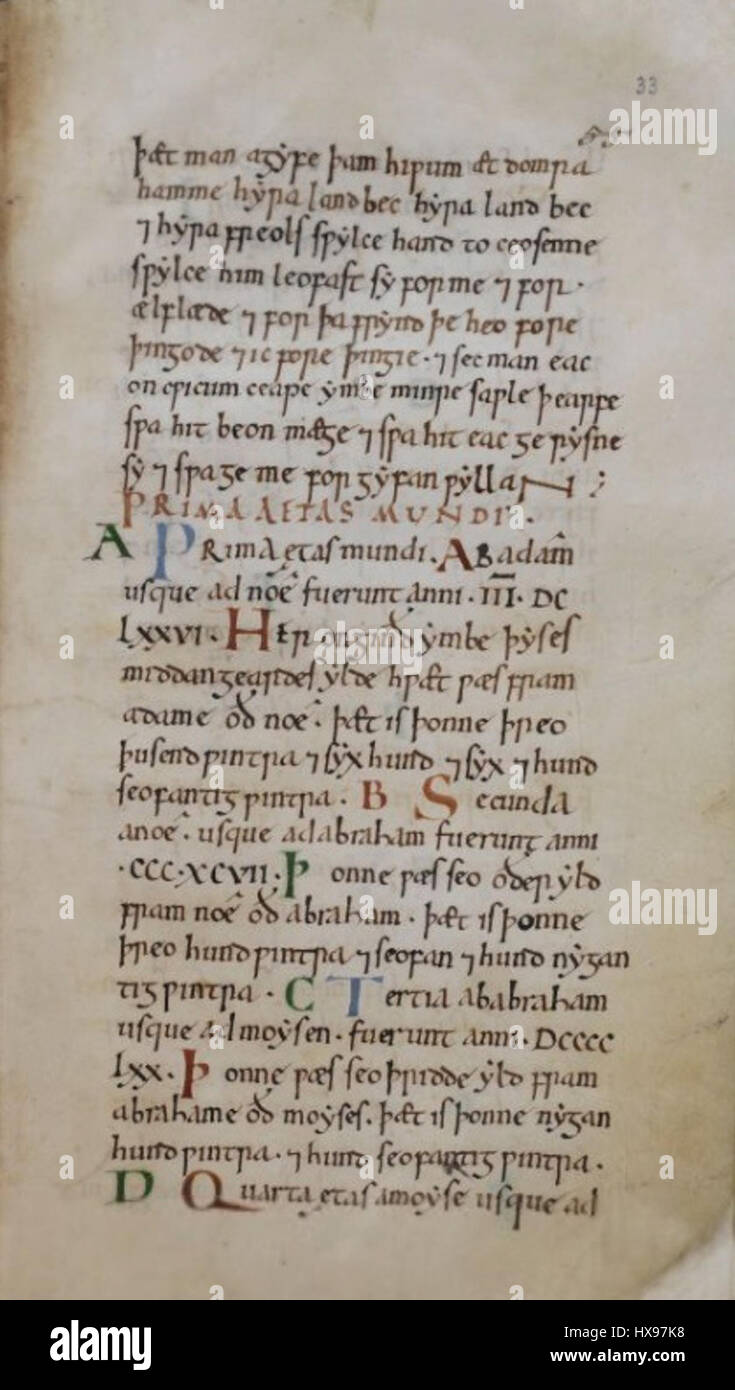 33
þæt man agyfe þam hiƿum æt domra
hamme hẏra landbec hẏra land bec
⁊ hẏra freols sƿẏlce hand to ceosenne
sƿẏlce him leofast sẏ for me ⁊ for·
ælflæde ⁊ for þa frẏnd þe heo fore
þingode ⁊ ic fore þingie · ⁊ sec man eac
on cƿicum ceape ẏmbe minre saƿle þearfe
sƿa hit beon mæge ⁊ sƿa hit eac gerẏsne
sẏ ⁊ sƿa ge me for gẏfan ƿẏllaN ;
PRIMA AETAS MUNDI ·
A PRima ętas mundi . ABadam̄
usque ad noe fuerunt anni · III · DC
lxxvi · HER ongind ẏmbe þẏses
middangeardes ẏlde hƿæt ƿæs fram
adame oð noe · þæt is þonne þreo
þusend ƿintra ⁊ sẏx hund ⁊ sẏx ⁊ hund
seofantig ƿintra . B Secunda
a noe · usque ad abraham fuerunt anni
·CCC·XCVII· Þonne ƿæs seo oðer ẏld
fram noe oð abraham · þæt is þonne
þreo hund ƿintra ⁊ seofan ⁊ hund nẏgan
tig ƿintra · C Tertia ab abraham
usque ad moẏsen · fuerunt anni · DCCCC
lxx · Þonne ƿæs seo þridde ẏld fram
abrahame oð moẏses . þæt is þonne nẏgan
hund ƿintra · ⁊ hund seofantig ƿintra .
D Quarta ętas a moẏse usque ad
alamy
Image ID: HX97K8
www.alamy.com